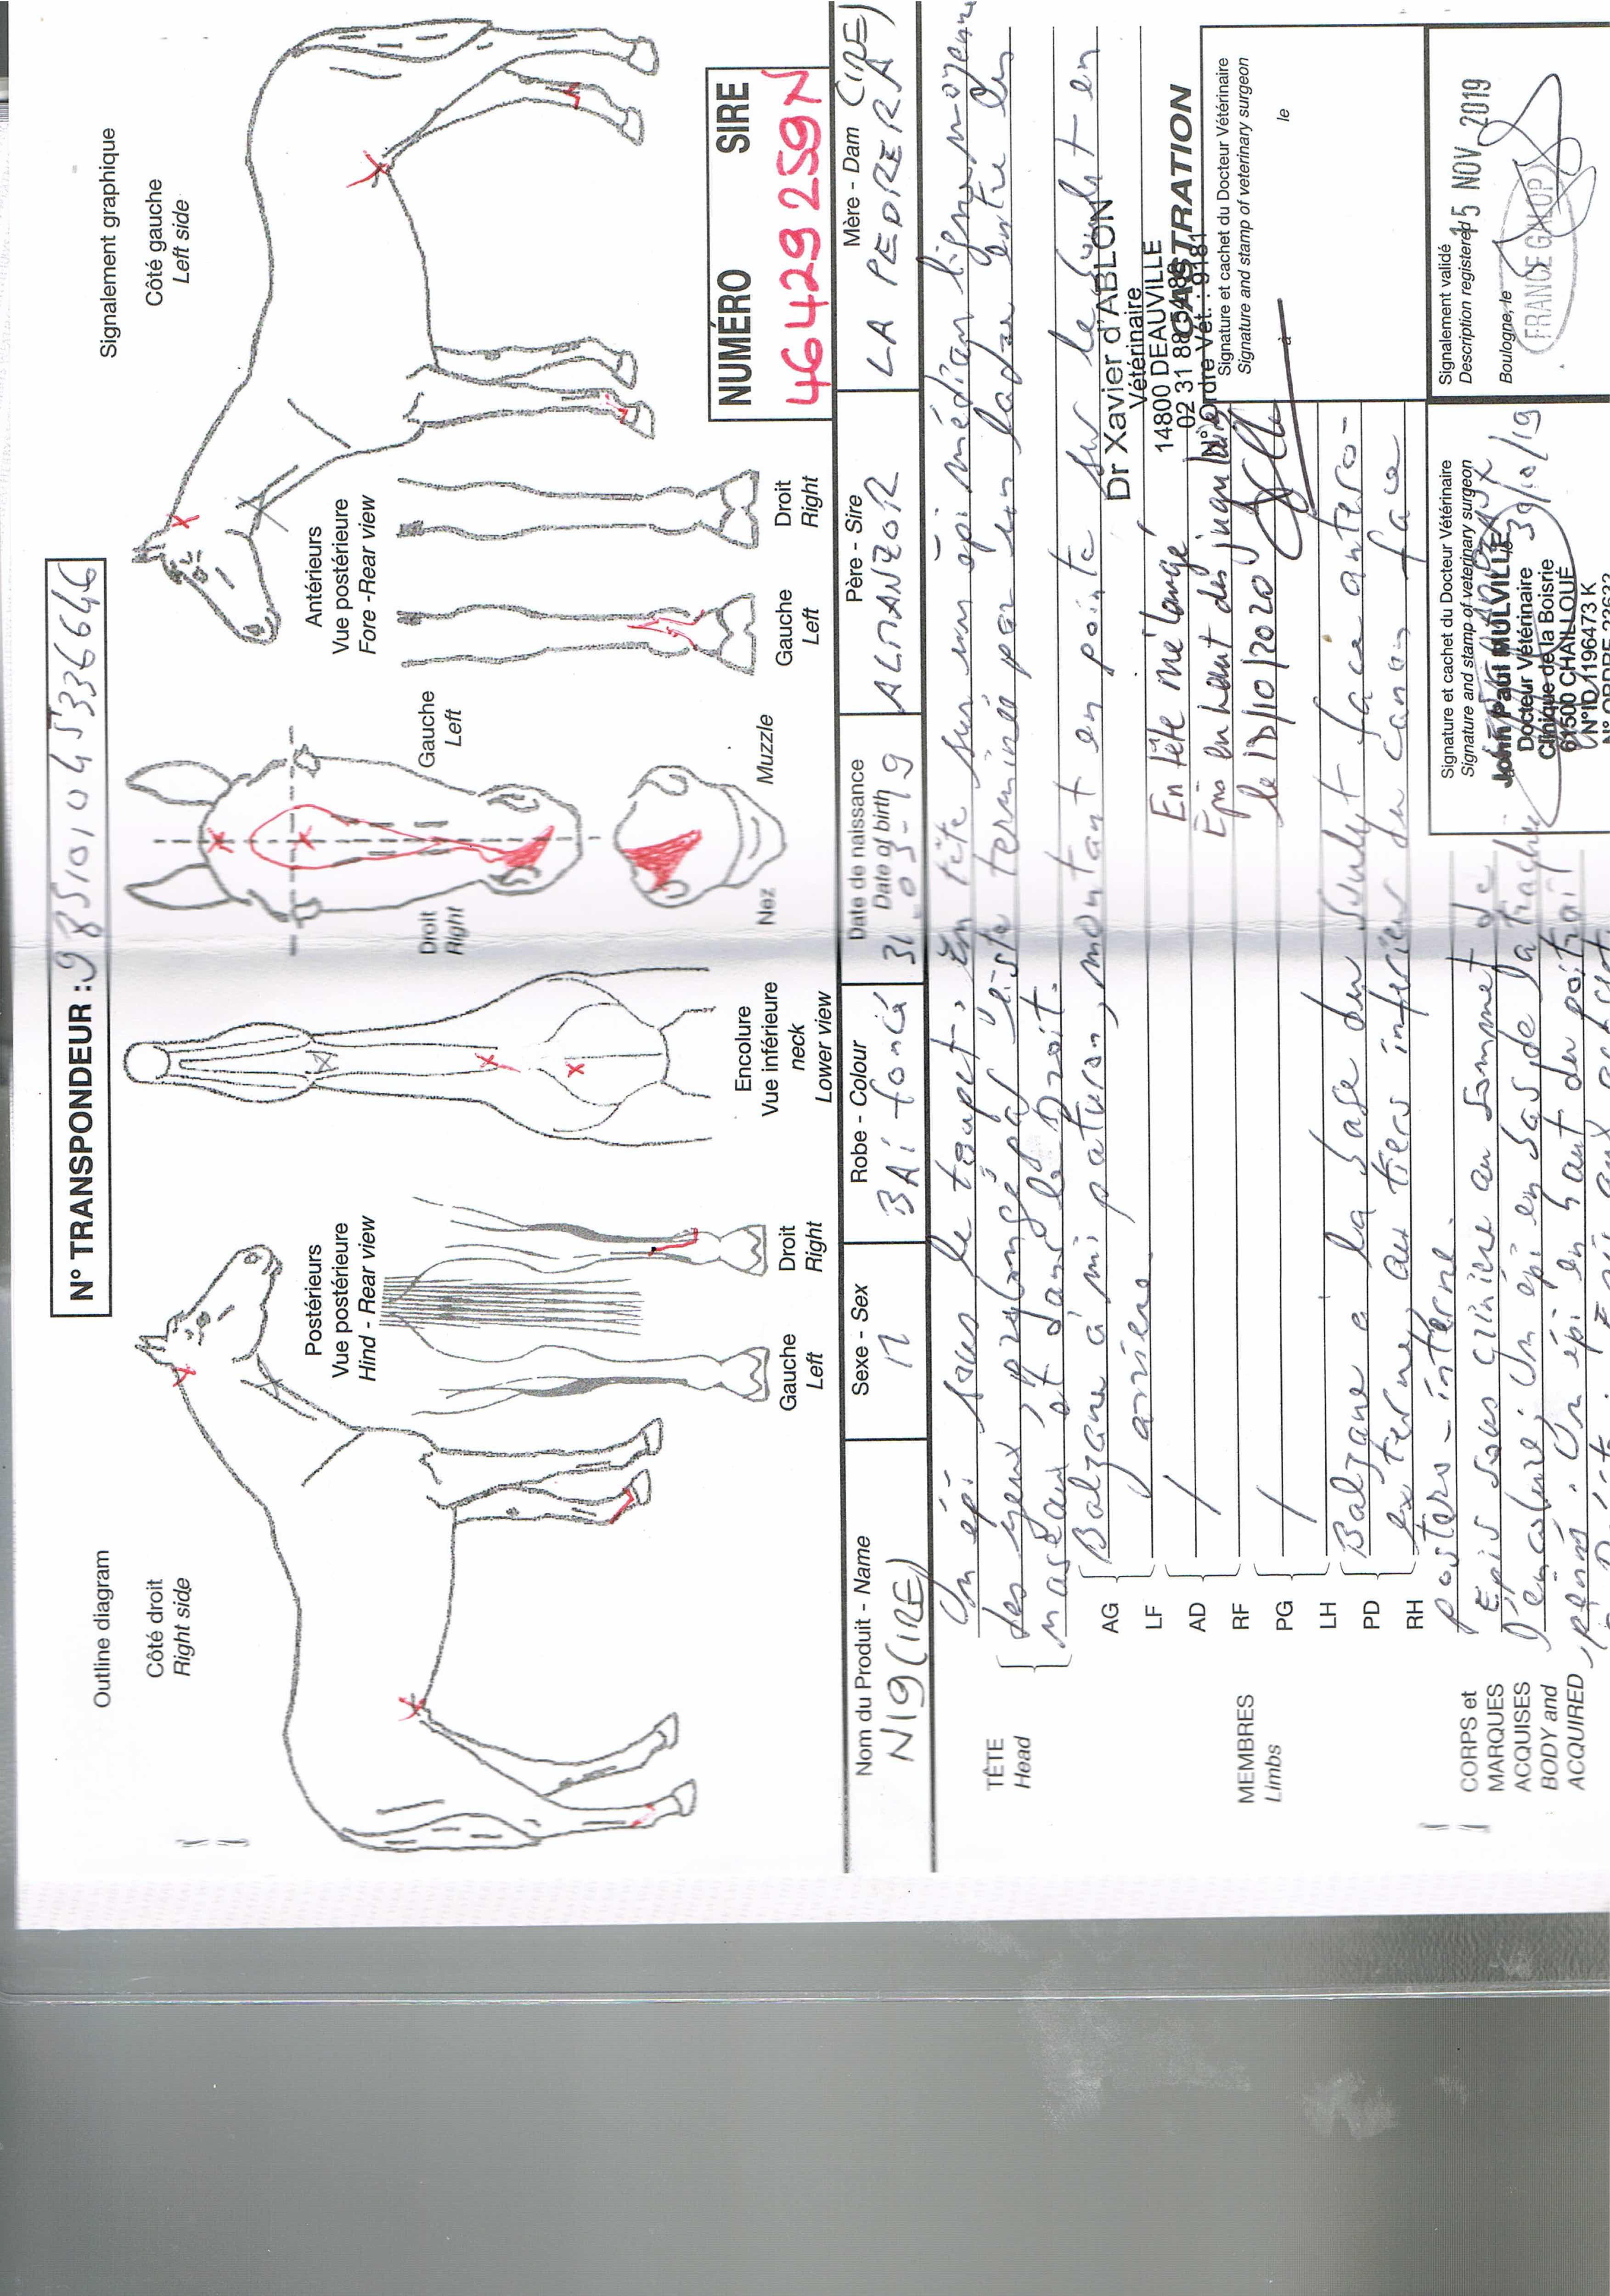 N° TRANSPONDEUR : 985101045336646
Outline diagram
Signalement graphique
Côté droit
Right side
Côté gauche
Left side
Postérieurs
Vue postérieure
Hind - Rear view
Gauche
Left
Droit
Right
Encolure
Vue inférieure
neck
Lower view
Droit
Right
Gauche
Left
Nez
Muzzle
Antérieurs
Vue postérieure
Fore -Rear view
Gauche
Left
Droit
Right
NUMÉRO SIRE
46429259N
Nom du Produit - Name
N19 (IRE)
Sexe - Sex
M
Robe - Colour
BAI foncé
Date de naissance
Date of birth
31-03-19
Père - Sire
ALMANZOR
Mère - Dam
LA PEDRERA (IRE)
TÊTE
Head
Un épi sous le toupet. En tête sur un épi médian ligne moyenne
des yeux, prolongé par liste terminée par un ladre entre les
naseaux et dans le droit.
MEMBRES
Limbs
AG
LF
Balzane à mi paturon, montant en pointe sur le boulet en
arrière
AD
RF
/
PG
LH
/
PD
RH
Balzane à la base du boulet face antéro-
externe, au tiers inférieur du canon face
postéro-interne.
En tête mélangé
Epis en haut des jugulaires
le 12/10/2020
Dr Xavier d'ABLON
Vétérinaire
14800 DEAUVILLE
02 31 88
N° Ordre Vét. : 9181
CASTRATION
Signature et cachet du Docteur Vétérinaire
Signature and stamp of veterinary surgeon
à
le
CORPS et
MARQUES
ACQUISES
BODY and
ACQUIRED
Epis sous crinière au sommet de
l'encolure. Un épi en bas de la trachée
. Un épi en haut du poitrail
Signature et cachet du Docteur Vétérinaire
Signature and stamp of veterinary surgeon
John Paul MULVILLE
Docteur Vétérinaire
Clinique de la Boisrie
61500 CHAILLOUÉ
N°ID 1196473 K
N° ORDRE
30/10/19
Signalement validé
Description registered
15 NOV. 2019
Boulogne, le
FRANCE GALOP